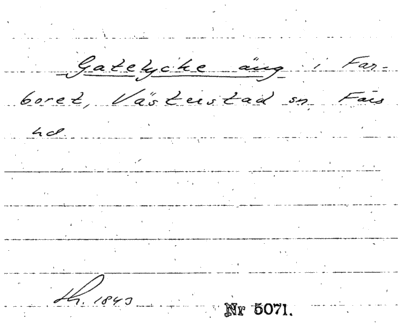 Gatelycke äng i Far-
boret, Västerstad sn. Färs
hd
Lh. 1843
Nr 5071.